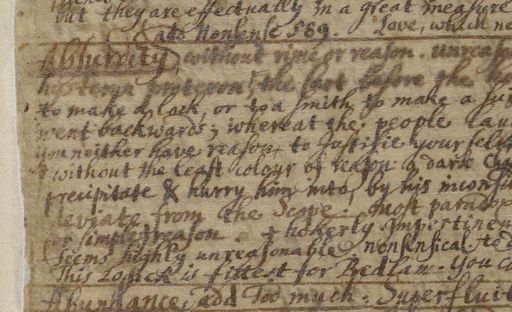 but they are effectually in a great measure
add Nonsense 589. Love, which ne
Absurdity without rime or reason. unreaso
hysteron proteron; the cart before the ho
to make a lock, or to a smith to make a sui
went backwards; whereat the people lau
you neither have reason, to Justifie your self
without the least colour of reason. a dark
precipitate & hurry him into, by his inconsi
deviate from the Scope. most parado
or simple reason. + hokerly Impertinen
Seems highly unreasonable nonsensical
This Logick is fittest for Bedlam. You ca
Abundance, add Too much. Superfluit